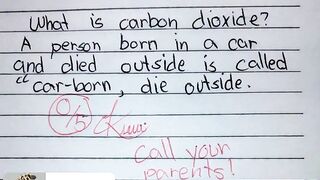 What is carbon dioxide?
A person born in a car
and died outside is called
"car-born, die outside.
0/5
call your
parents!